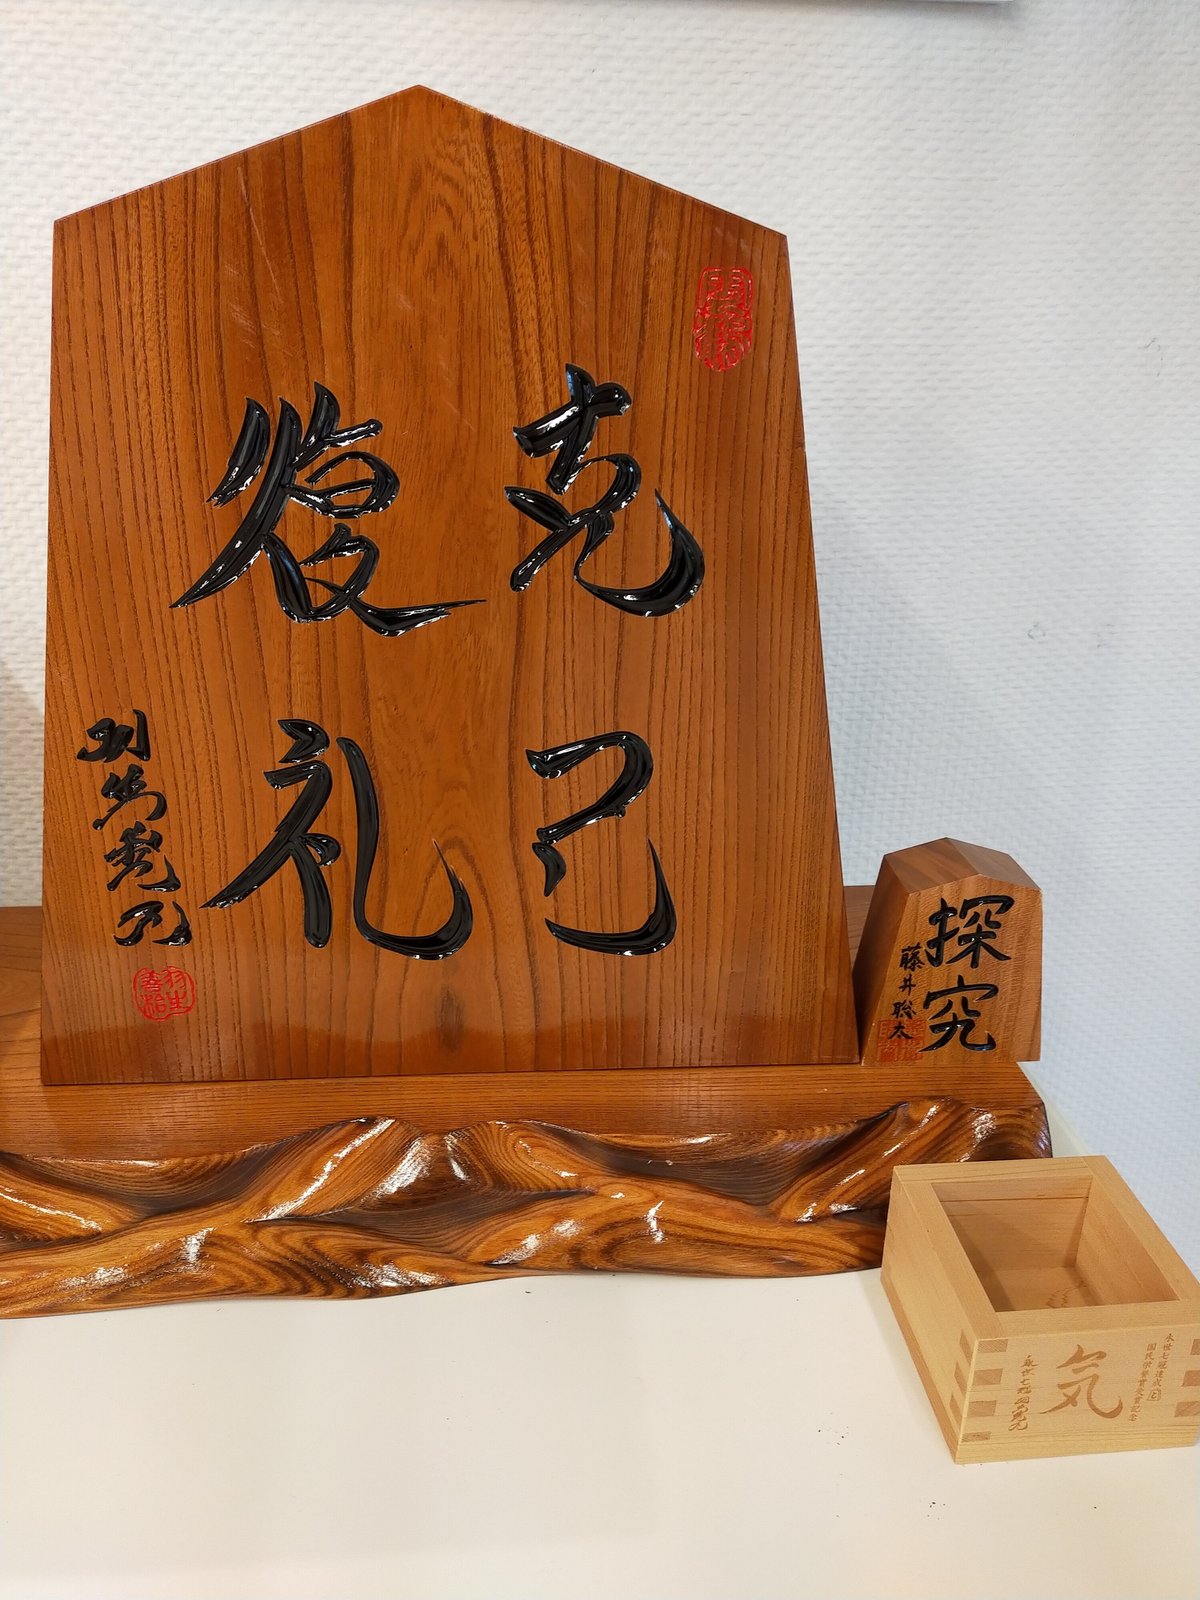 克己
復礼
羽生善治
羽生
善治
探究
藤井聡太
永世七冠達成
国民栄誉賞受賞記念
気
永世七冠羽生善治